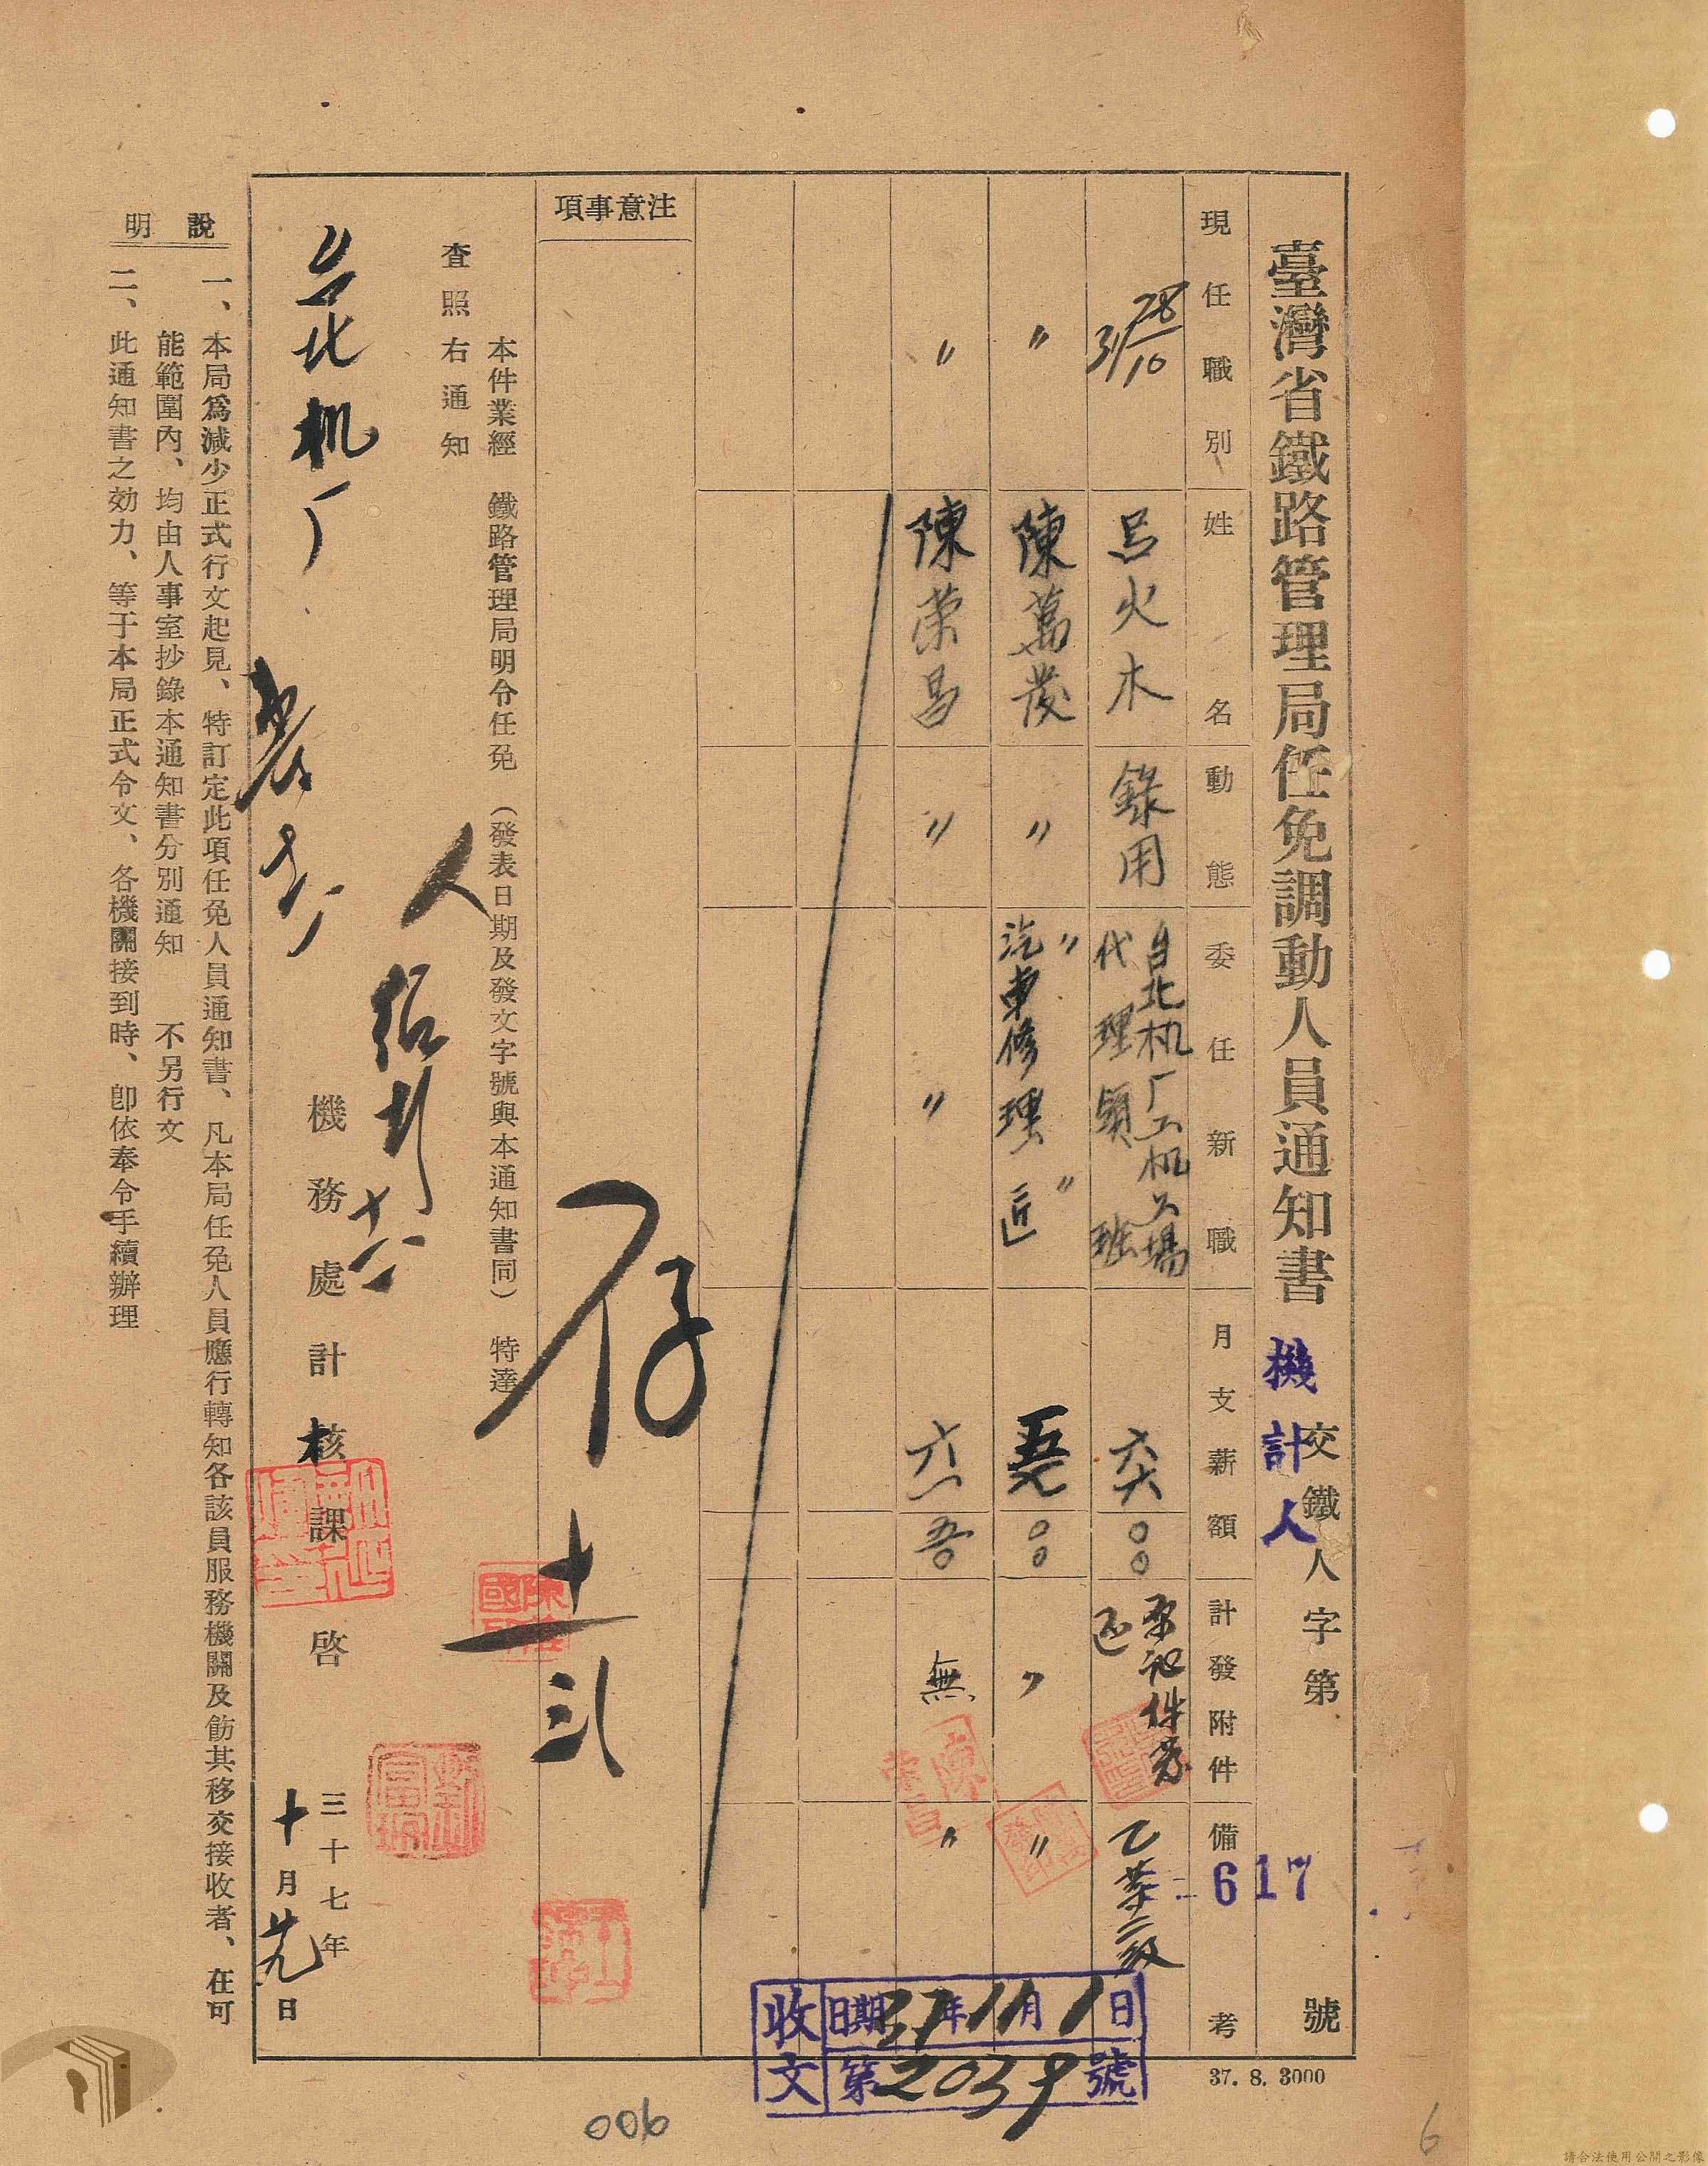 臺灣省鐵路管理局任免調動人員通知書
機計人
交鐵人字第
617
號
現任職別
姓名
動態
委任新職
月支薪額
計發附件
備考
28/10
31
呂火木
錄用
台北机厂工机工場
代理領班
六六
〇〇
乙等二級
〃
陳萬發
〃
〃 〃
汽車修理匠
〇〇
〃
〃
陳荣昌
〃
〃
六一
五〇
無
〃
注意事項
存
十一
本件業經 鐵路管理局明令任免 (發表日期及發文字號與本通知書同) 特達
查照右通知
台北机厂
人
機務處計核課啓
三十七年
十月廿九日
說明
一、本局爲減少正式行文起見、特訂定此項任免人員通知書、凡本局任免人員應行轉知各該員服務機關及飭其移交接收者、在可
能範圍內、均由人事室抄錄本通知書分別通知 不另行文
二、此通知書之効力、等于本局正式令文、各機關接到時、卽依奉令手續辦理
收文
日期37年11月1日
第2039號
37. 8. 3000
006
6
請合法使用公開之影像